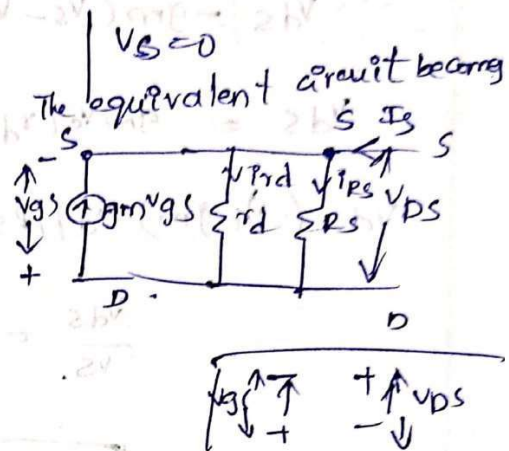 VS=0
The equivalent circuit becomes
S S IS S
- vgs + gmvgs ird rd iRS RS VDS
D D
vgs - + + - VDS